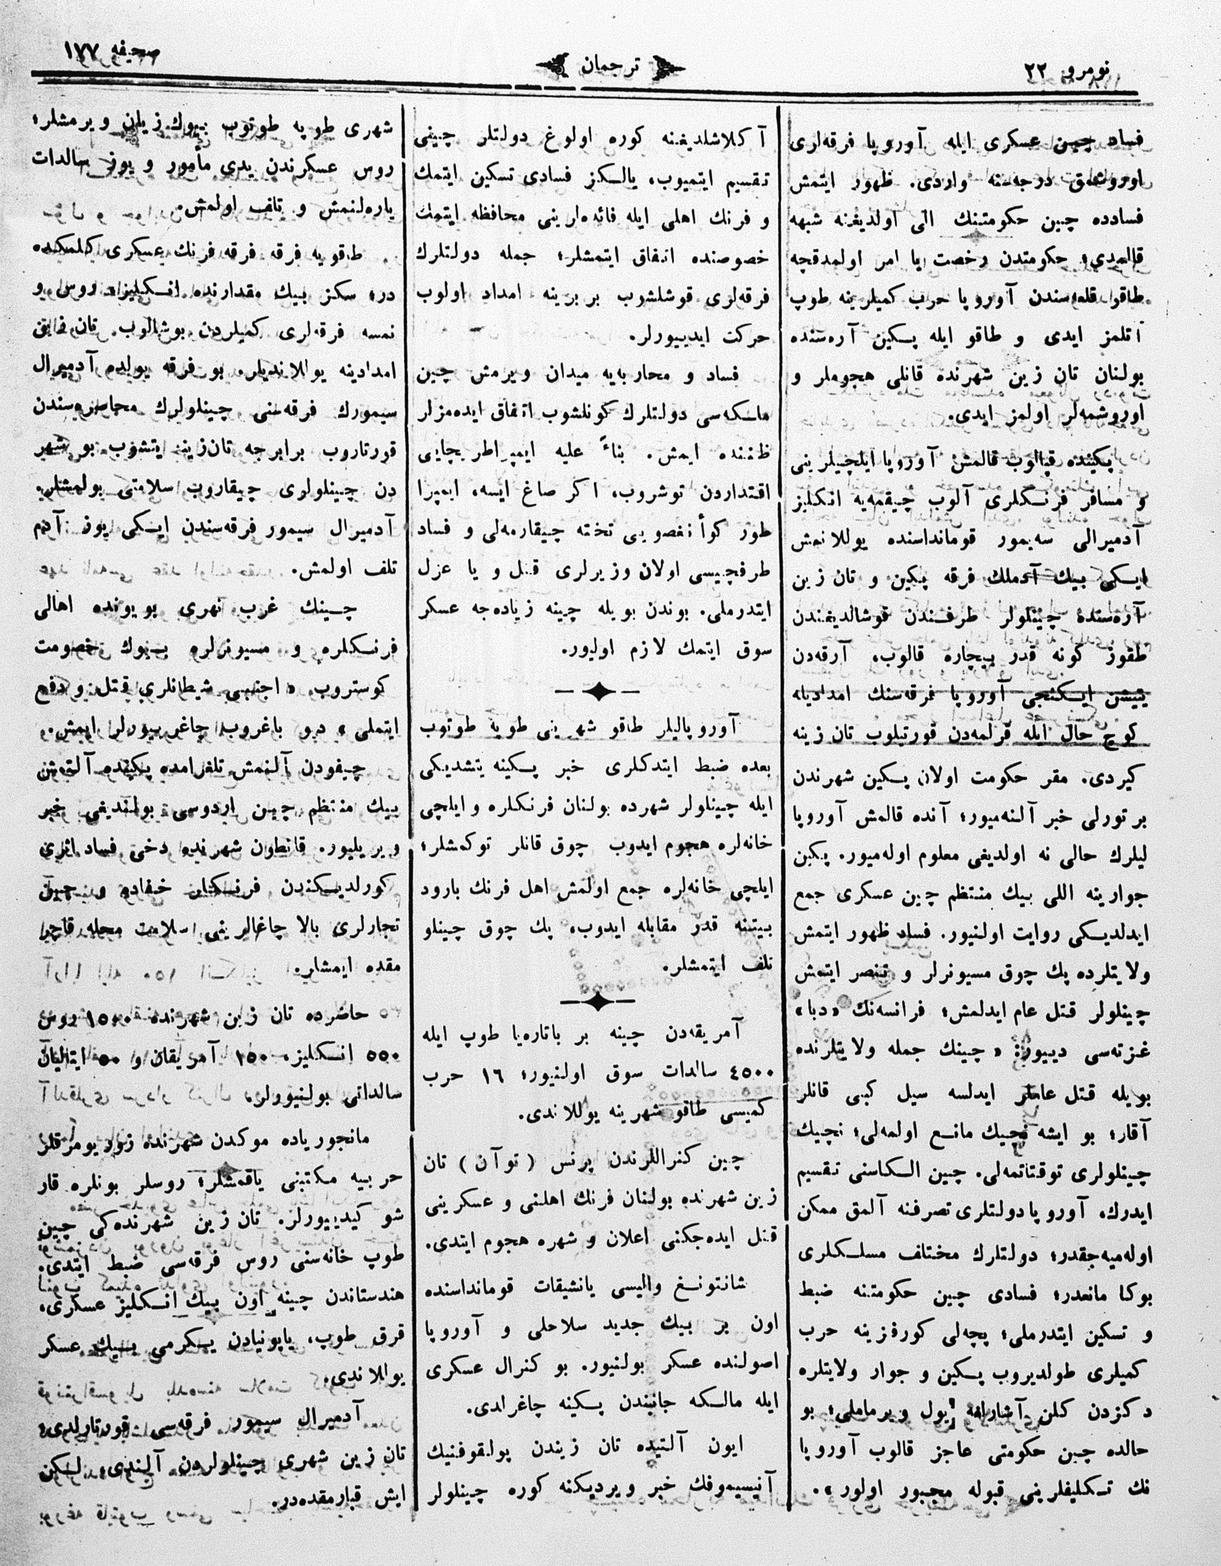 نومرو ٢٢
ترجمان
صحيفه ١٧٧
فساد چين عسكرى ايله آوروپا فرقه‌لرى
اوروشمق درجه‌سنه واردى. ظهور ايتمش
فسادده چين حكومتنك الى اولديغنه شبهه
قالمدى؛ حكومتدن رخصت يا امر اولمدقچه
طاقو قلعه‌سندن آوروپا حرب كميلرينه طوپ
آتلمز ايدى و طاقو ايله پكين آره‌سنده
بولنان تان زين شهرنده قانلى هجوملر و
اوروشمه‌لر اولمز ايدى.
پكنده قپالوب قالمش آوروپا ايلچيلرينى
و مسافر فرنكلرى آلوب چيقمه‌يه انكليز
آدميرالى سه‌يمور قومانداسنده يوللانمش
ايكى بيك آدملك فرقه پكين و تان زين
آره‌سندۀ چينلولر طرفندن قوشالديغندن
طقوز كونه قدر بيچاره قالوب، آرقه‌دن
يتيشن ايكنجى آوروپا فرقه‌سنك امداديله
كوچ حال ايله قرلمه‌دن قورتيلوب تان زينه
كيردى. مقر حكومت اولان پكين شهرندن
بر تورلى خبر آلنه‌ميور؛ آنده قالمش آوروپا
ليلرك حالى نه اولديغى معلوم اوله‌ميور. پكين
جوارينه اللى بيك منتظم چين عسكرى جمع
ايدلديكى روايت اولنيور. فساد ظهور ايتمش
ولايتلرده پك چوق مسيونرلر و تنصر ايتمش
چينلولر قتل عام ايدلمش؛ فرانسه‌نك «دبا»
غزته‌سى دييور: «چينك جمله ولايتلرنده
بويله قتل عاملر ايدلسه سيل كبى قانلر
آقار؛ بو ايشه نچيك مانع اولمه‌لى؛ نچيك
چينلولرى توقتاتمه‌لى. چين الكاسنى تقسيم
ايدرك، آوروپا دولتلرى تصرفنه آلمق ممكن
اوله‌ميه‌جقدر؛ دولتلرك مختلف مسلكلرى
بوكا مانعدر؛ فسادى چين حكومتنه ضبط
و تسكين ايتدرملى؛ پچه‌لى كورفزينه حرب
كميلرى طولديروب پكين و جوار ولايتلره
دكزدن كلن آشارلغه يول ويرماملى؛ بو
حالده چين حكومتى عاجز قالوب آوروپا
نك تكليفلرينى قبوله مجبور اولور».
آكلاشلديغنه كوره اولوغ دولتلر چينى
تقسيم ايتميوب، يالكز فسادى تسكين ايتمك
و فرنك اهلى ايله فائده‌لرينى محافظه ايتمك
خصوصنده اتفاق ايتمشلر؛ جمله دولتلرك
فرقه‌لرى قوشلشوب بربرينه امداد اولوب
حركت ايدييورلر.
فساد و محاربه‌يه ميدان ويرمش چين
ملكه‌سى دولتلرك كونلشوب اتفاق ايده‌مزلر
ظننده ايمش. بناءً عليه ايمپراطريچايى
اقتداردن توشروب، اكر صاغ ايسه، ايمپرا
طور كوأنغصويى تخته چيقارمه‌لى و فساد
طرفچيسى اولان وزيرلرى قتل و يا عزل
ايتدرملى. بوندن بويله چينه زياده‌جه عسكر
سوق ايتمك لازم اوليور.
آوروپاليلر طاقو شهرينى طوپه طوتوب
بعده ضبط ايتدكلرى خبر پكينه يتشديكى
ايله چينلولر شهرده بولنان فرنكلره و ايلچى
خانه‌لره هجوم ايدوب چوق قانلر توكمشلر؛
ايلچى خانه‌لره جمع اولمش اهل فرنك بارود
بيتنه قدر مقابله ايدوب، پك چوق چينلو
تلف ايتمشلر.
آمريقه‌دن چينه بر باتاره‌يا طوپ ايله
٤٥٠٠ سالدات سوق اولنيور؛ ١٦ حرب
كميسى طاقو شهرينه يوللاندى.
چين كنراللرندن پرنس (توآن) تان
زين شهرنده بولنان فرنك اهلنى و عسكرينى
قتل ايده‌جكنى اعلان و شهره هجوم ايتدى.
شانتونغ واليسى يانشيقات قومانداسنده
اون بر بيك جديد سلاحلى و آوروپا
اصولنده عسكر بولنيور. بو كنرال عسكرى
ايله مالكه جانبندن پكينه چاغرلدى.
ايون آلتيده تان زيندن پولقوفنيك
آنيسيموفك خبر ويرديكنه كوره چينلولر
شهرى طوپه طوتوب بيوك زيان ويرمشلر؛
روس عسكرندن يدى مأمور و يوز سالدات
ياره‌لنمش و تلف اولمش.
طاقويه فرقه فرقه فرنك عسكرى كلمكده
در؛ سكز بيك مقدارنده انكليز، روس و
نمسه فرقه‌لرى كميلردن بوشالوب. تان زينك
امدادينه يوللانديلر. بو فرقه يولده آدميرال
سيمورك فرقه‌سنى چينلولرك محاصره‌سندن
قورتاروب برابرجه تان‌زينه يتشوب بو شهر
دن چينلولرى چيقاروب سلامتى بولمشلر.
آدميرال سيمور فرقه‌سندن ايكى يوز آدم
تلف اولمش.
چينك غرب نهرى بويونده اهالى
فرنكلره و مسيونرلره بيوك خصومت
كوستروب، «اجنبى شيطانلرى قتل و دفع
ايتملى» ديو باغروب چاغريورلر ايمش.
چيفودن آلنمش تلغرامده پكنده آلتمش
بيك منتظم چين اردوسى بولنديغى خبر
ويريليور. قانطون شهرنده دخى فساد اثرى
كورلديكندن فرنكلر خيفاده و چين
تجارلرى بالا چاغالرينى سلامت محله قاچر
مقده ايمشلر.
حاضرده تان زين شهرنده ١٥٠٠ روس
٥٥٠ انكليز، ١٥٠ آمريقان و ٥٠ ايتاليان
سالداتى بولنيور.
مانجورياده موكدن شهرنده زور يومرقلر
حربيه مكتبنى ياقمشلر؛ روسلر بونلره قار
شو كيدييورلر. تان زين شهرنده‌كى چين
طوپ خانه‌سنى روس فرقه‌سى ضبط ايتدى.
هندستاندن چينه اون بيك انكليز عسكرى،
قرق طوپ، ياپونيادن يكرمى بيك عسكر
يوللاندى.
آدميرال سيمور فرقه‌سى قورتارلدى،
تان زين شهرى چينلولردن آلندى، ليكن
ايش قبارمقده‌در.